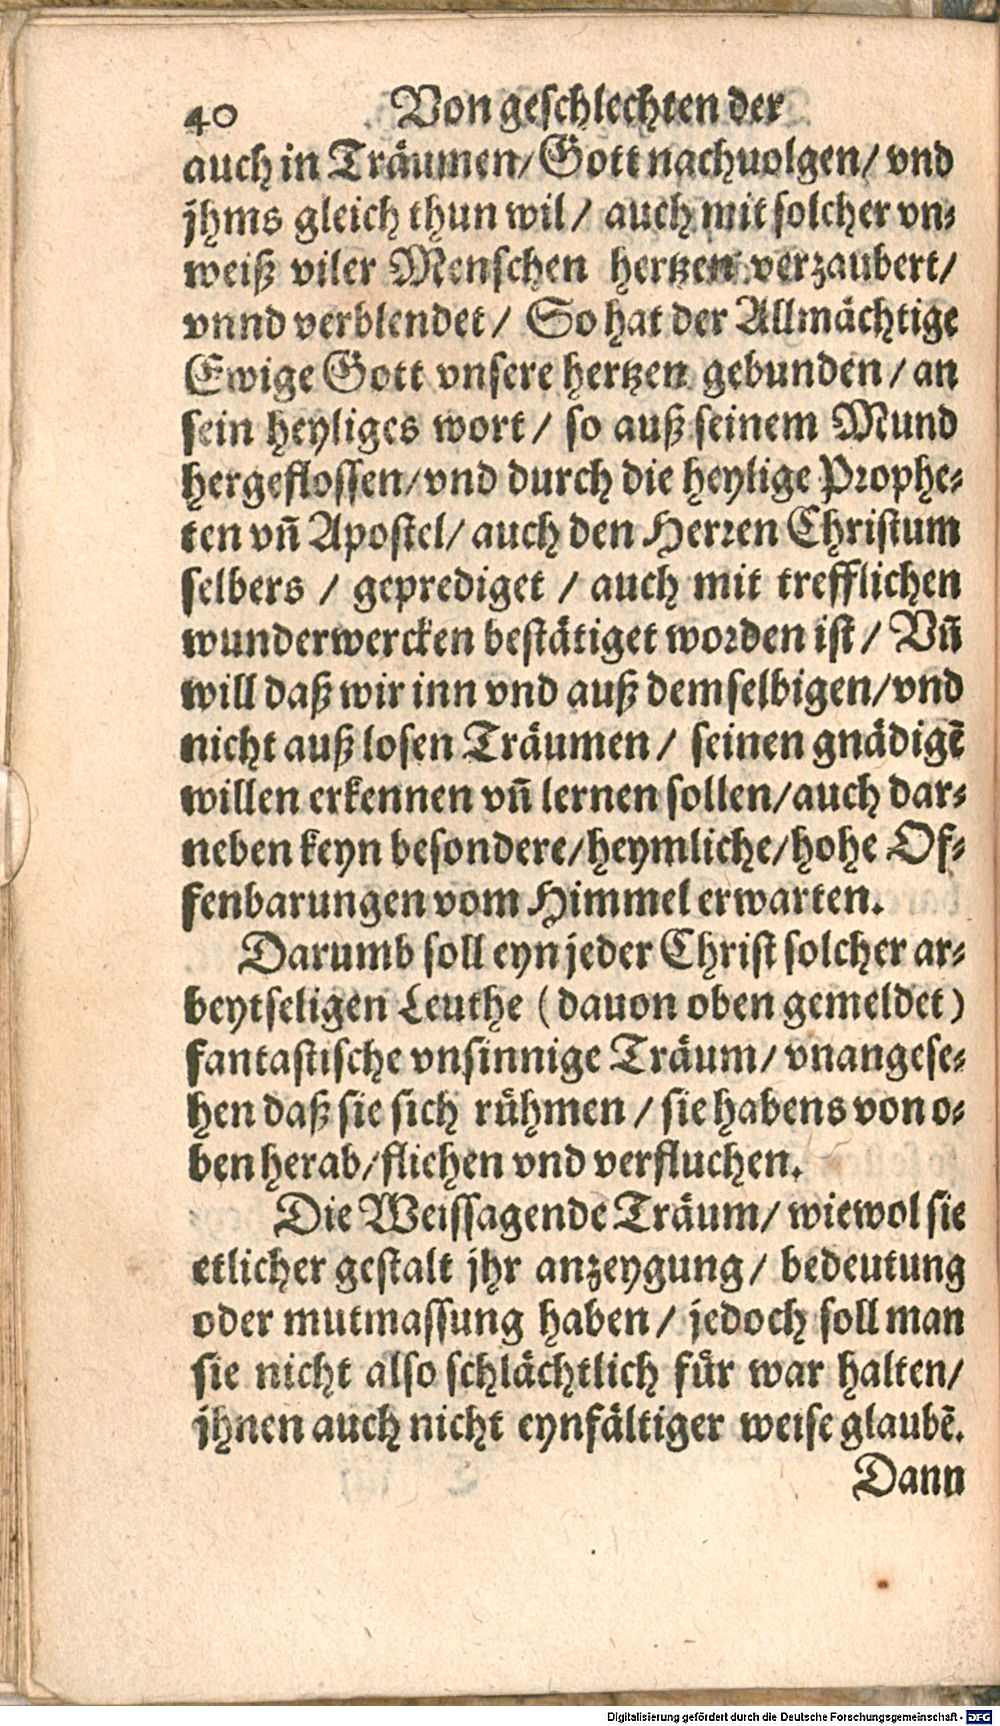 40 Von geschlechten der
auch in Träumen/ Gott nachuolgen/ vnd
jhms gleich thun wil/ auch mit solcher vn⸗
weiß viler Menschen hertzen verzaubert/
vnnd verblendet/ So hat der Allmächtige
Ewige Gott vnsere hertzen gebunden/ an
sein heyliges wort/ so auß seinem Mund
hergeflossen/ vnd durch die heylige Prophe⸗
ten vñ Apostel/ auch den Herren Christum
selbers / geprediget / auch mit trefflichen
wunderwercken bestätiget worden ist/ Vñ
will daß wir inn vnd auß demselbigen/ vnd
nicht auß losen Träumen/ seinen gnädigẽ
willen erkennen vñ lernen sollen/ auch dar⸗
neben keyn besondere/ heymliche/ hohe Of⸗
fenbarungen vom Himmel erwarten.
Darumb soll eyn jeder Christ solcher ar⸗
beytseligen Leuthe (dauon oben gemeldet)
fantastische vnsinnige Träum/ vnangese⸗
hen daß sie sich rühmen / sie habens von o⸗
ben herab/ flichen vnd verfluchen.
Die Weissagende Träum/ wiewol sie
etlicher gestalt jhr anzeygung/ bedeutung
oder mutmassung haben/ jedoch soll man
sie nicht also schlächtlich für war halten/
jhnen auch nicht eynfältiger weise glaubẽ.
Dann
Digitalisierung gefördert durch die Deutsche Forschungsgemeinschaft - DFG